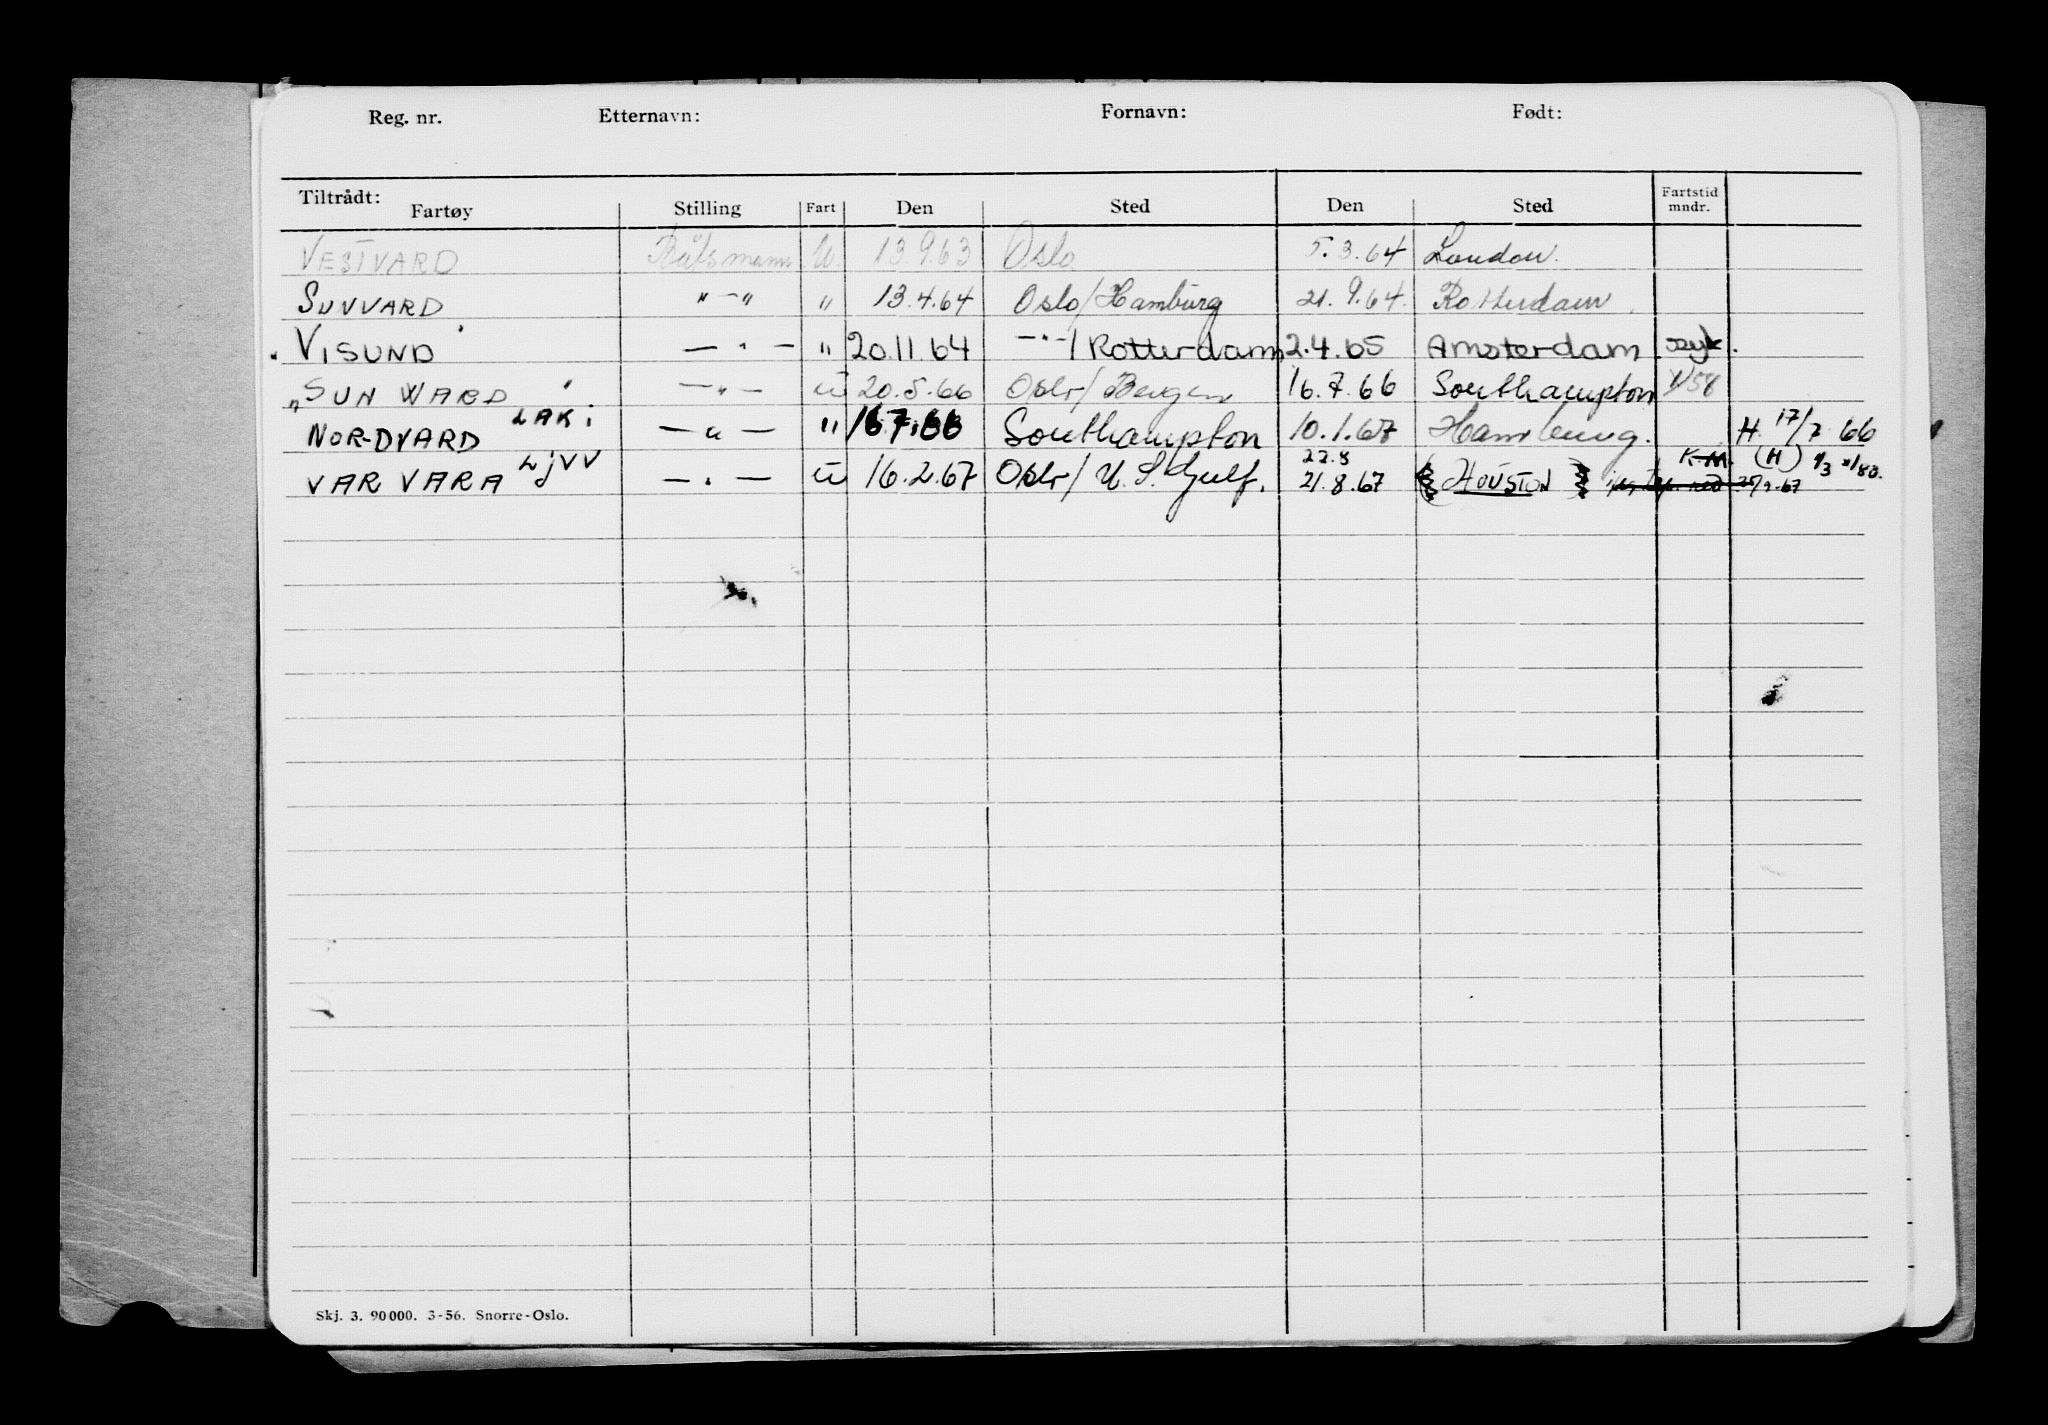 Reg. nr. Etternavn: Fornavn: Født:
Tiltrådt: Fartøy Stilling Fart Den Sted Den Sted Fartstid mndr.
VESTVARD Båtsmann U. 13.9.63 Oslo 5.3.64 London.
SUNVARD " — " " 13.4.64 Oslo/Hamburg 21.9.64. Rotterdam.
VISUND — " — " 20.11.64 — " —/Rotterdam 2.4.65 Amsterdam syk.
SUN WARD — " — U 20.5.66 Oslo/Bergen 16.7.66 Southampton
NORDVARD LAKI — " — " 16.7.66 Southampton 10.1.67 Hamburg. H 17/7 66
22.8 K.M. (H)
VAR VARA LJVV — " — U 16.2.67 Oslo/U.S. Gulf. 21.8.67 (HOUSTON)
Skj. 3. 90000. 3-56. Snorre-Oslo.